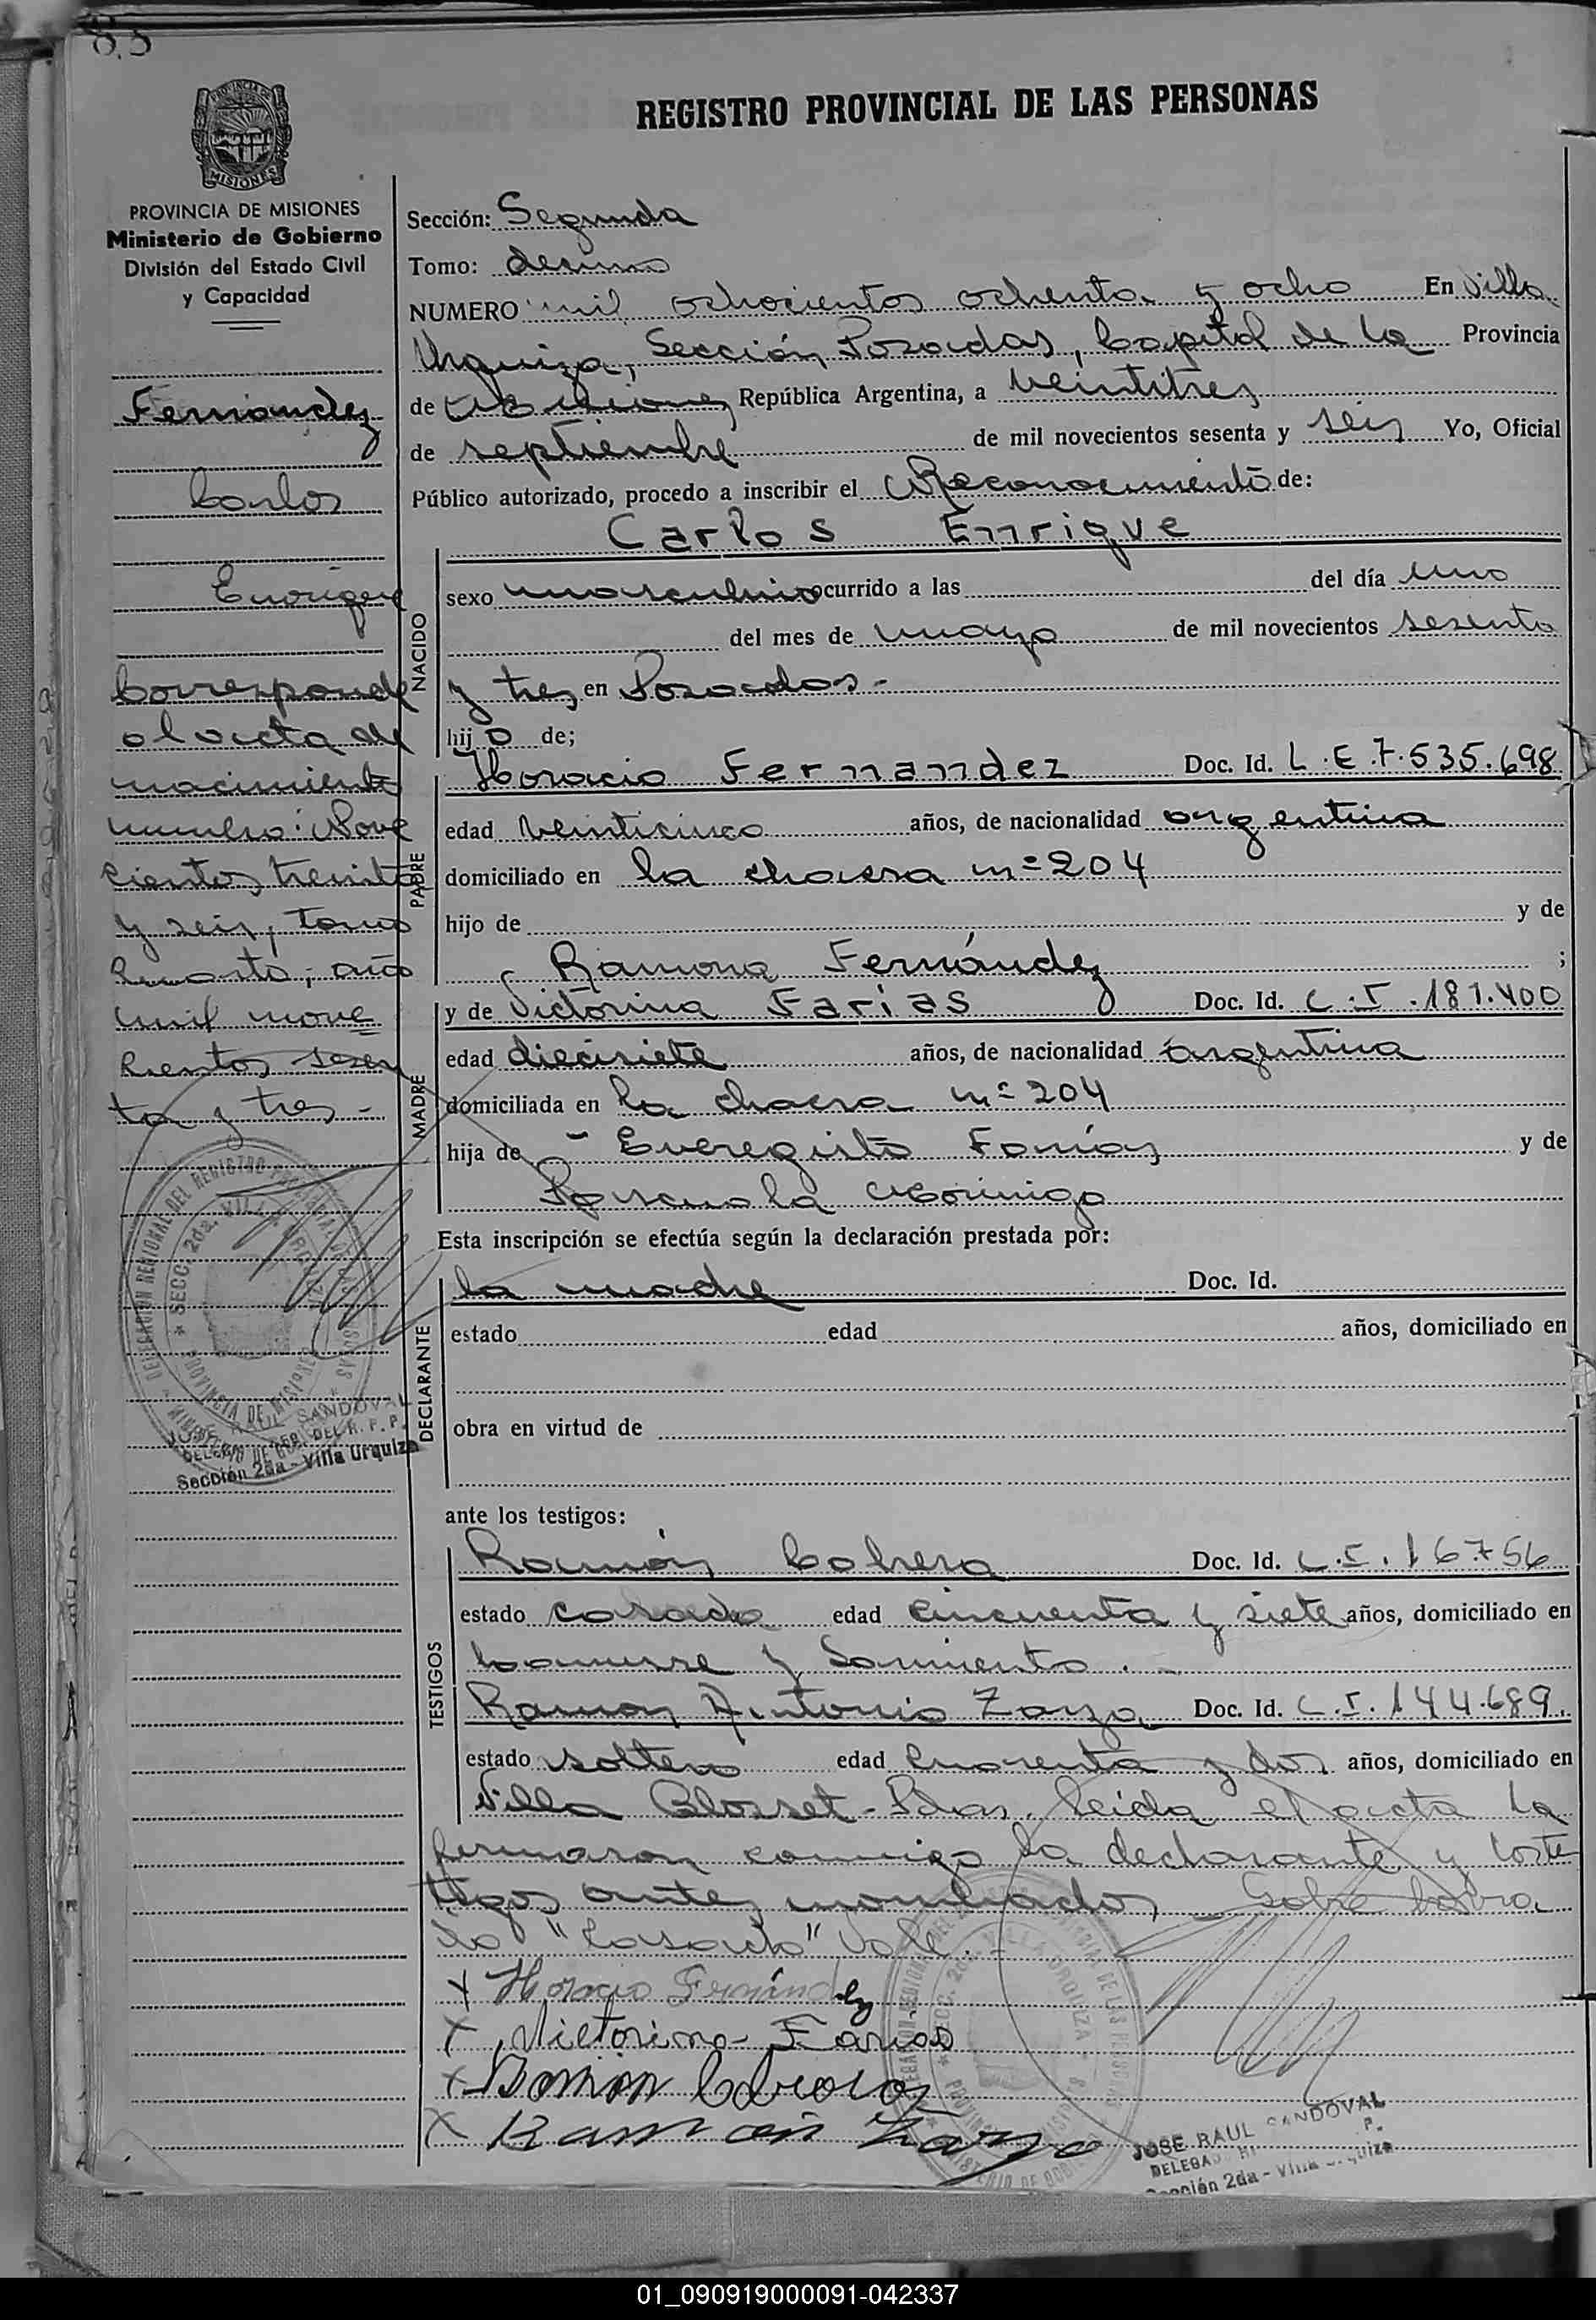 83
REGISTRO PROVINCIAL DE LAS PERSONAS
MISIONES
PROVINCIA DE MISIONES
Ministerio de Gobierno
División del Estado Civil
y Capacidad
Fernandez
Carlos
Enrique
Corresponde
al acta de
nacimiento
numero: Nove
cientos treinta
y seis, tomo
cuarto, año
mil nove
cientos sesen
ta y tres -
Sección: Segunda
Tomo: decimo
NUMERO mil ochocientos ochenta y ocho En Villa
Urquiza, Sección Posadas, Capital de la Provincia
de Misiones República Argentina, a veintitres
de septiembre de mil novecientos sesenta y seis Yo, Oficial
Público autorizado, procedo a inscribir el Reconocimiento de:
Carlos Enrique
NACIDO
sexo masculino ocurrido a las del día uno
del mes de mayo de mil novecientos sesenta
y tres en Posadas.-
hijo de;
PADRE
Horacio Fernandez Doc. Id. L.E.7.535.698
edad veinticinco años, de nacionalidad argentina
domiciliado en la chacra nº 204
hijo de y de
Ramona Fernández ;
MADRE
y de Victorina Farias Doc. Id. C.I.181.400
edad diecisiete años, de nacionalidad argentina
domiciliada en la chacra nº 204
hija de - Everegisto Farías y de
Pascuala Morinigo
Esta inscripción se efectúa según la declaración prestada por:
DECLARANTE
la madre Doc. Id.
estado edad años, domiciliado en
obra en virtud de
ante los testigos:
TESTIGOS
Ramón Cabrera Doc. Id. C.I.16756
estado casado edad cincuenta y siete años, domiciliado en
y Sarmiento.-
Ramon Antonio Zarza Doc. Id. C.I.144.689.
estado soltero edad cuarenta y dos años, domiciliado en
Villa Blosset - Pdas. leida el acta la
firmaron conmigo la declarante y los te
tigos antes nombrados - Sobre borra
do "Casado" Vale.-
x Horacio Fernández
x Victorina Farias
x Ramón Cabrera
x Ramon Zarza
DELEGACION REGIONAL DEL REGISTRO PROVINCIAL DE LAS PERSONAS
* SECC. 2da. VILLA URQUIZA *
PROVINCIA DE MISIONES
MINISTERIO DE GOBIERNO
JOSE RAUL SANDOVAL
Sección 2da - Villa Urquiza
JOSE RAUL SANDOVAL
Sección 2da - Villa Urquiza
01_090919000091-042337